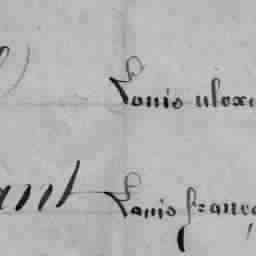 Louis alexi
ant Louis franço